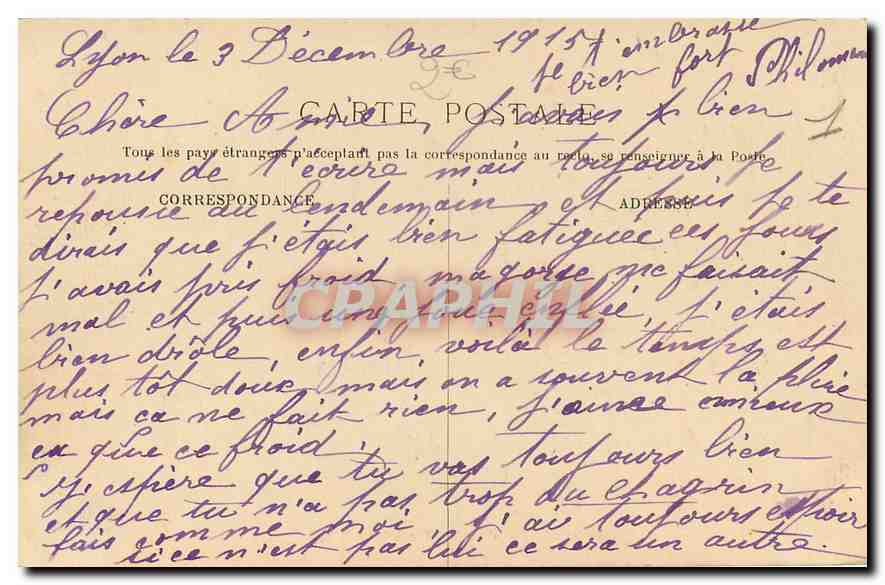 Lyon le 3 Décembre 1915
je t'embrasse
bien fort Philomène
2€
1
CARTE POSTALE
Chère Amie, j'avais bien
Tous les pays étrangers n'acceptant pas la correspondance au recto, se renseigner à la Poste
promis de t'écrire mais toujours je
CORRESPONDANCE
ADRESSE
repousse au lendemain et puis je te
dirais que j'étais bien fatiguée ces jours
j'avais pris froid magorge me faisait
mal et puis une joue enflée, j'étais
bien drôle, enfin, voilà le temps est
plus tôt doux, mais on a souvent la pluie
mais ca ne fait rien, j'aime mieux
ca que ce froid.
J'espère que tu vas toujours bien
et que tu n'a pas trop du chagrin
fais comme moi j'ai toujours espoir
sice n'est pas lui ce sera un autre.
CPAPHIL